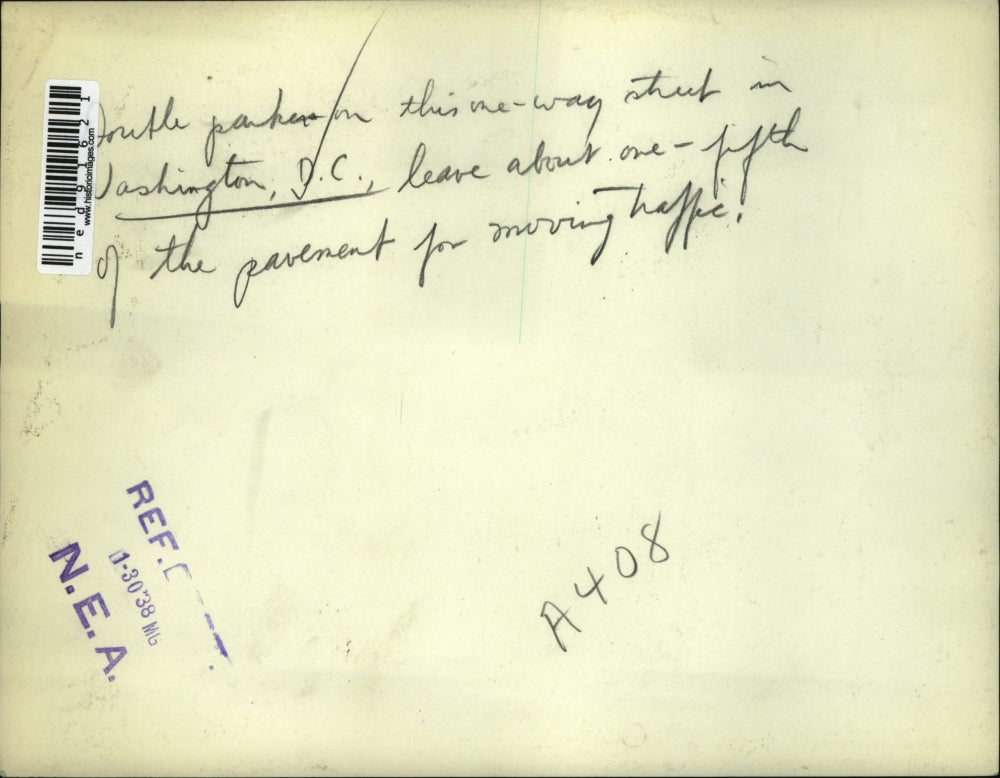 Double parkers on this one-way street in
Washington, D.C., leave about one-fifth
of the pavement for moving traffic.
ned91621
www.historicimages.com
REF.
1-30'38 MG
N.E.A.
A408